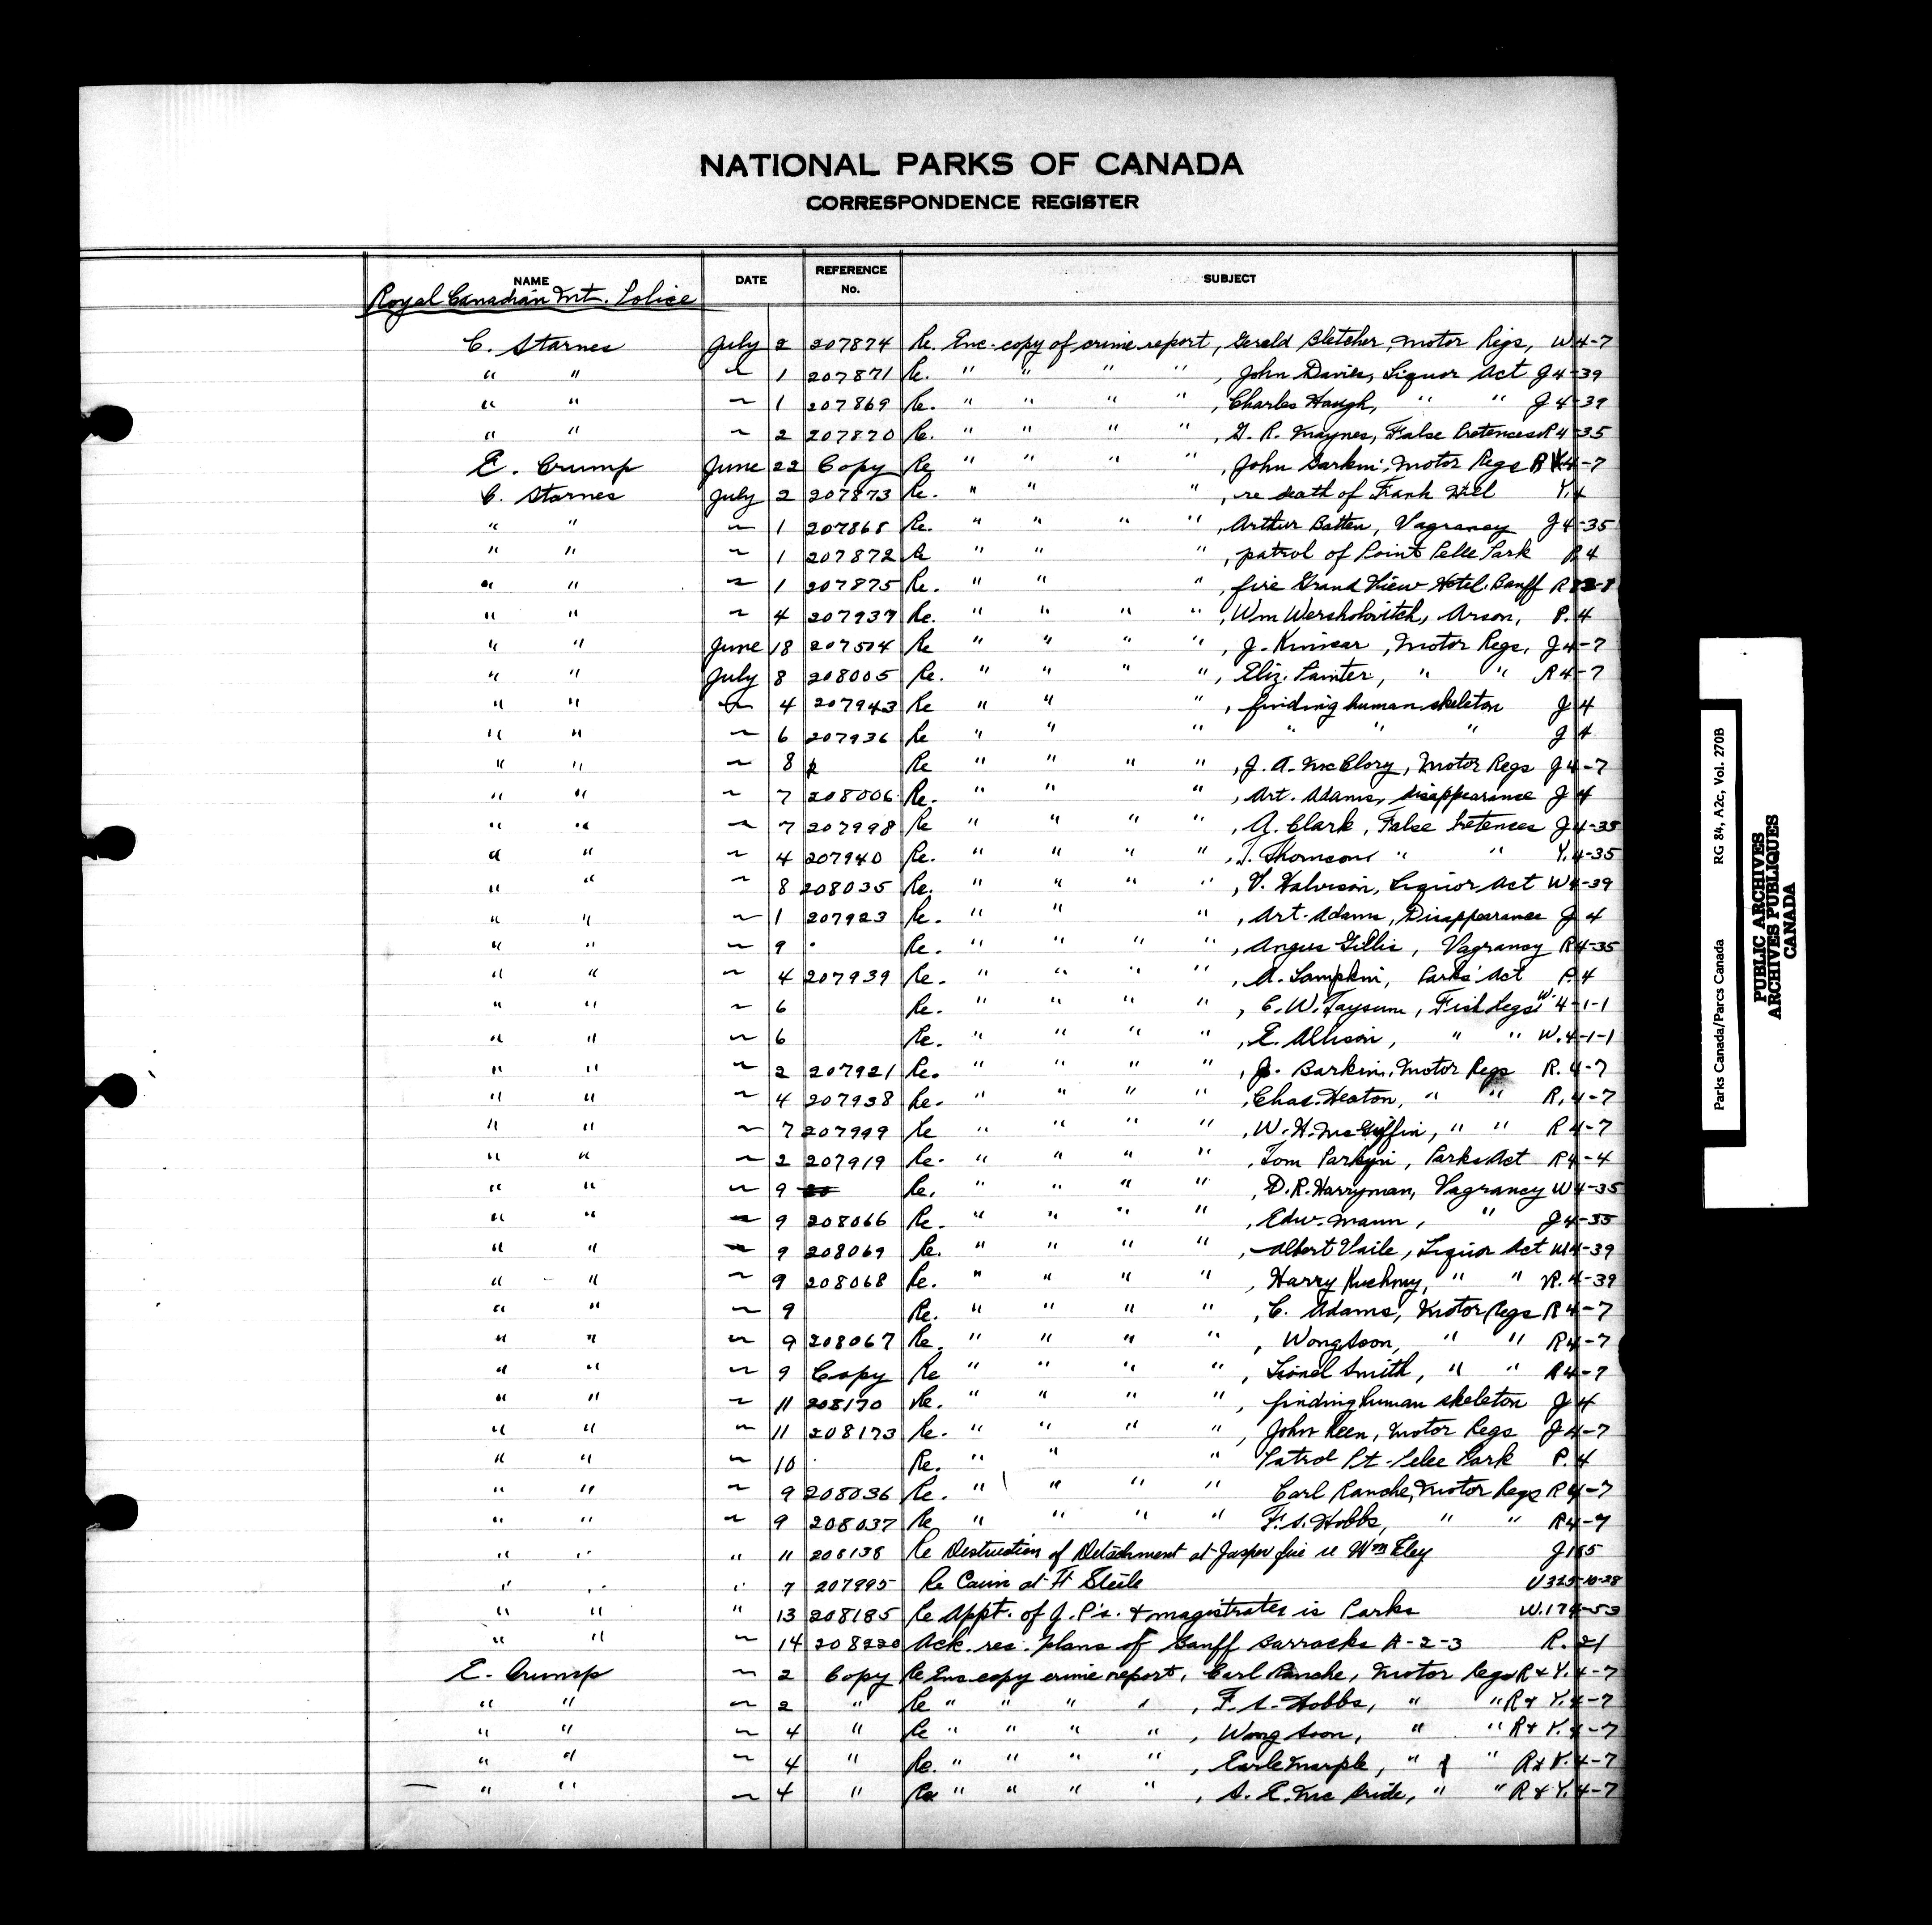 NATIONAL PARKS OF CANADA
CORRESPONDENCE REGISTER
NAME DATE REFERENCE No. SUBJECT
Royal Canadian Mt. Police
C. Starnes July 2 207874 Re. Enc. copy of crime report, Gerald Bletcher, Motor Regs, W 4-7
" " ~ 1 207871 Re. " " " ", John Davies, Liquor Act J 4-39
" " ~ 1 207869 Re. " " " ", Charles Haugh, " " J 4-39
" " ~ 2 207870 Re. " " " ", G. R. Maynes, False Pretences R 4-35
E. Crump June 22 Copy Re " " " ", John Barkin, Motor Regs R 4-7
C. Starnes July 2 207873 Re. " " ", re death of Frank Y.4
" " ~ 1 207868 Re. " " " ", Arthur Batten, Vagrancy J 4-35
" " ~ 1 207872 Re " " ", patrol of Point Pelle Park P 4
" " ~ 1 207875 Re. " " ", fire Grand View Hotel. Banff R
" " ~ 4 207937 Re. " " " ", Wm Wersholovitch, Arson, P. 4
" " June 18 207504 Re " " " ", J. Kinnear, Motor Regs, J 4-7
" " July 8 208005 Re. " " " ", Eliz. Painter, " " R 4-7
" " ~ 4 207943 Re " " ", finding human skeleton J 4
" " ~ 6 207936 Re " " " " " " J 4
" " ~ 8 Re " " " ", J. A. McClory, Motor Regs J 4-7
" " ~ 7 208006 Re. " " ", Art. Adams, disappearance J 4
" " ~ 7 207998 Re " " " ", A. Clark, False Pretences J 4-35
" " ~ 4 207940 Re. " " " ", T. Thomson " " Y. 4-35
" " ~ 8 208035 Re. " " " ", V. Halvison, Liquor Act W 4-39
" " ~ 1 207923 Re. " " ", Art. Adams, Disappearance J 4
" " ~ 9 " Re. " " " ", Angus Gillis, Vagrancy R 4-35
" " ~ 4 207939 Re. " " " ", A. Lampkin, Parks' Act P. 4
" " ~ 6 Re. " " " ", C. W. Taysum, Fish Regs W. 4-1-1
" " ~ 6 Re. " " " ", E. Allison, " " W. 4-1-1
" " ~ 2 207921 Re. " " " ", J. Barkin, Motor Regs R. 4-7
" " ~ 4 207938 Re. " " " ", Chas. Heaton, " " R. 4-7
" " ~ 7 207999 Re " " " ", W. H. McGiffin, " " R 4-7
" " ~ 2 207919 Re. " " " ", Tom Parkyn, Parks Act R 4-4
" " ~ 9 Re. " " " ", D. R. Harryman, Vagrancy W 4-35
" " ~ 9 208066 Re. " " " ", Edw. Mann, " J 4-35
" " ~ 9 208069 Re. " " " ", Albert Vaile, Liquor Act W 4-39
" " ~ 9 208068 Re. " " " ", Harry Kuchmy, " " R. 4-39
" " ~ 9 Re. " " " ", C. Adams, Motor Regs R 4-7
" " ~ 9 208067 Re. " " " ", Wong Soon, " " R 4-7
" " ~ 9 Copy Re " " " ", Lionel Smith, " " R 4-7
" " ~ 11 208170 Re. " " " ", finding human skeleton J 4
" " ~ 11 208173 Re. " " " ", John Keen, Motor Regs J 4-7
" " ~ 10 Re. " " " Patrol Pt. Pelee Park P. 4
" " ~ 9 208036 Re. " " " " Carl Ranche, Motor Regs R 4-7
" " ~ 9 208037 Re " " " " F. S. Hobbs, " " R 4-7
" " " 11 208138 Re Destruction of Detachment at Jasper fire re Wm Eley J 165
" " " 7 207995 Re Cairn at Ft Steele U 325-10-28
" " " 13 208185 Re Appt. of J.P's. & magistrates in Parks W. 174-53
" " ~ 14 208220 Ack. rec. plans of Banff Barracks A-2-3 R. 21
E. Crump ~ 2 Copy Re Enc copy crime report, Carl Ranche, Motor Regs R & Y. 4-7
" " ~ 2 " Re " " " ", F. S. Hobbs, " " R & Y. 4-7
" " ~ 4 " Re " " " ", Wong Soon, " " R & Y. 4-7
" " ~ 4 " Re. " " " ", Earle Marple, " " R & Y. 4-7
" " ~ 4 " Re " " " ", S. E. McBride, " " R & Y. 4-7
Parks Canada/Parcs Canada RG 84, A2c, Vol. 270B
PUBLIC ARCHIVES
ARCHIVES PUBLIQUES
CANADA